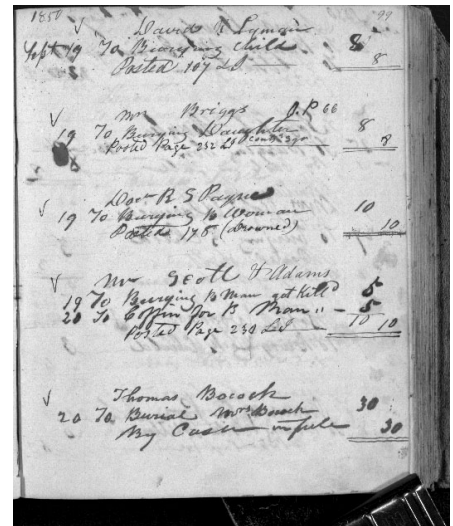 1850 99
David R Lyman
Sept 19 To Burying Child 8
Posted 107 Ld 8
Mr Briggs J. P 66
19 To Burying Daughter 8
Posted Page 232 Ld 8
Doct R S Payne
19 To Burying B Woman 10
Posted 175 (Drowned) 10
Mr Scott & Adams
19 To Burying B Man got Kill'd 5
20 To Coffin for B Man " — 5
Posted Page 230 Ld 10 10
Thomas Bocock
20 To Burial Mrs Bocock 30
By Cash in full 30